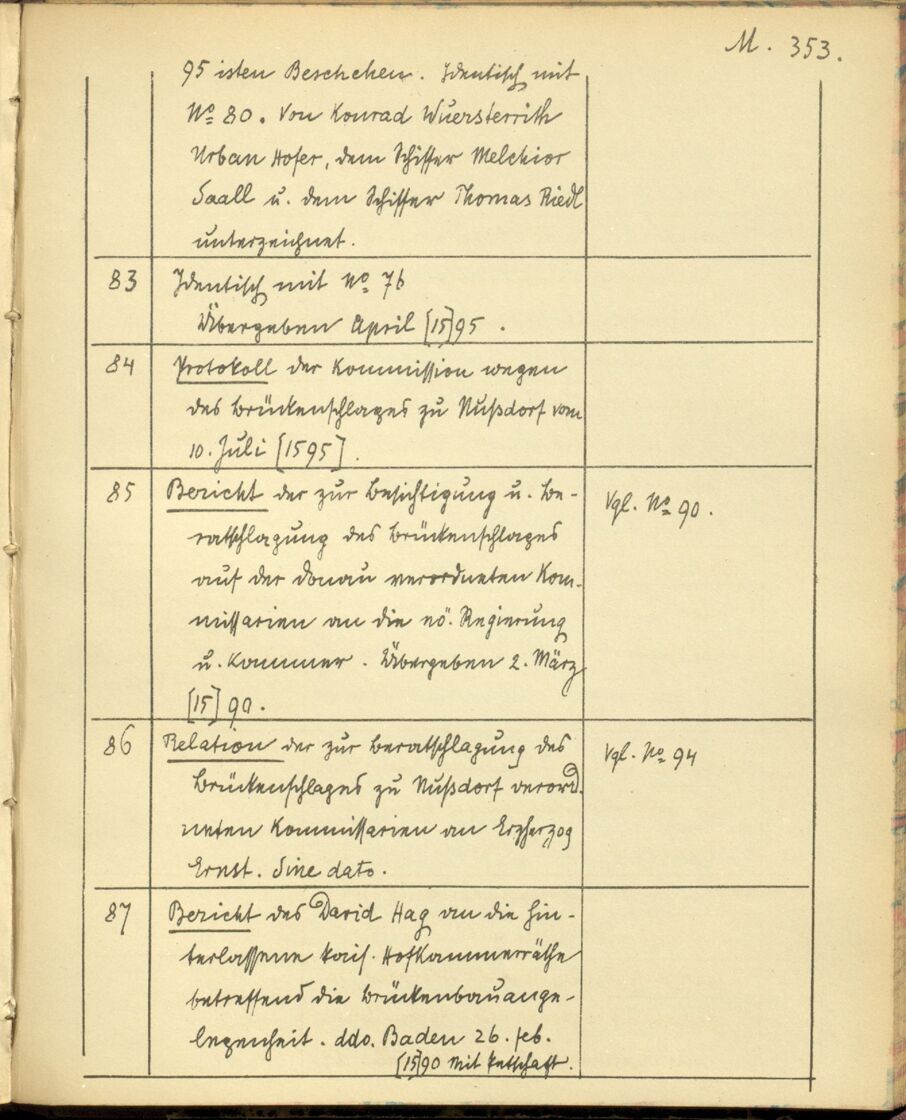 M. 353.
95 isten Beschehen. Identisch mit
No 80. Von Konrad Wuersterrith
Urban Hofer, dem Schiffer Melchior
Saall u. dem Schiffer Thomas Riedl
unterzeichnet.
83 Identisch mit No 76
Übergeben April [15]95.
84 Protokoll der Kommission wegen
des Brückenschlages zu Nußdorf vom
10. Juli [1595].
85 Bericht der zur Besichtigung u. Be- Vgl. No 90.
ratschlagung des Brückenschlages
auf der Donau verordneten Kom-
missarien an die nö. Regierung
u. Kammer. Übergeben 2. März
[15]90.
86 Relation der zur Beratschlagung des Vgl. No 94
Brückenschlages zu Nußdorf verord.
neten Kommissarien an Erzherzog
Ernst. Sine dato.
87 Bericht des David Hag an die hin-
terlassene kais. Hofkammerräthe
betreffend die Brückenbauange-
legenheit. ddo. Baden 26. Feb.
[15]90 mit Petschaft.